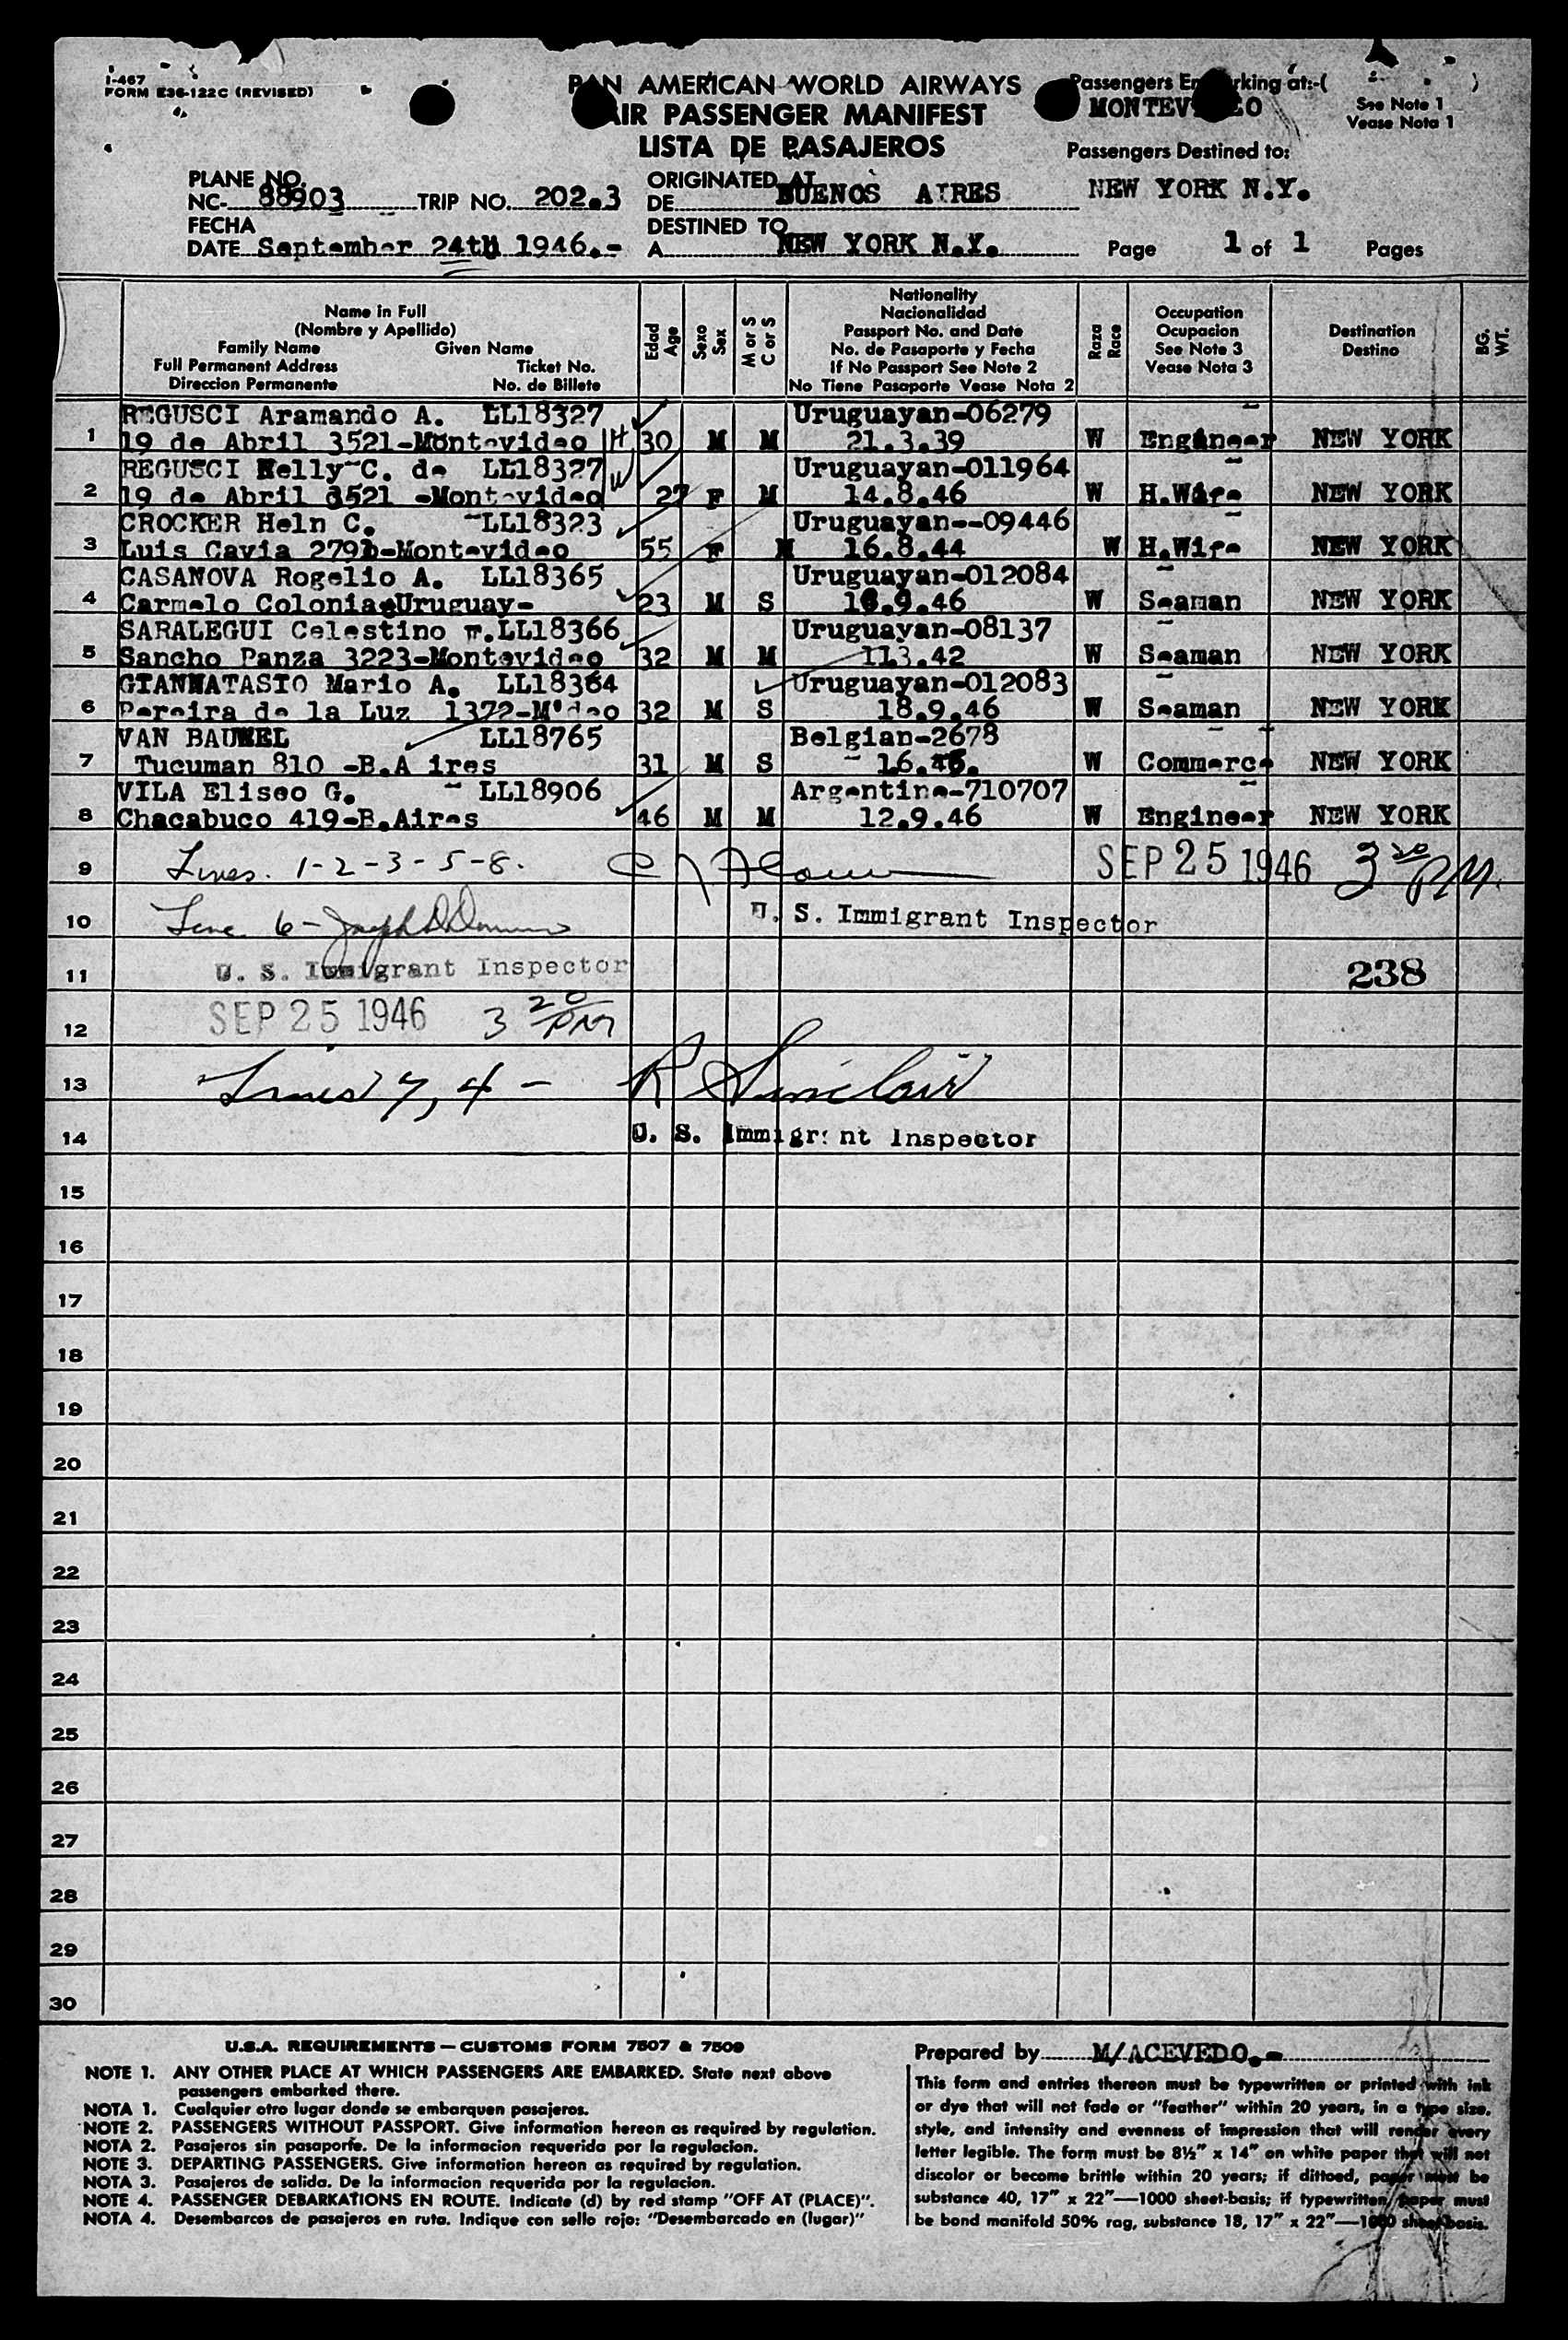 I-467
FORM E36-122C (REVISED)
PAN AMERICAN WORLD AIRWAYS
AIR PASSENGER MANIFEST
LISTA DE PASAJEROS
Passengers Embarking at:-( )
MONTEVIDEO
See Note 1
Vease Nota 1
Passengers Destined to:
NEW YORK N.Y.
PLANE NO.
NC- 88903 TRIP NO. 202.3
ORIGINATED AT
DE BUENOS AIRES
FECHA
DATE September 24th 1946.-
DESTINED TO
A NEW YORK N.Y.
Page 1 of 1 Pages
Name in Full
(Nombre y Apellido)
Family Name Given Name
Full Permanent Address Ticket No.
Direccion Permanente No. de Billete
Edad
Age
Sexo
Sex
M or S
C or S
Nationality
Nacionalidad
Passport No. and Date
No. de Pasaporte y Fecha
If No Passport See Note 2
No Tiene Pasaporte Vease Nota 2
Raza
Race
Occupation
Ocupacion
See Note 3
Vease Nota 3
Destination
Destino
BG.
WT.
REGUSCI Aramando A. LL18327 Uruguayan-06279
1 19 de Abril 3521-Montevideo H 30 M M 21.3.39 W Engineer NEW YORK
REGUSCI Nelly C. de LL18327 Uruguayan-011964
2 19 de Abril 3521 -Montevideo W 27 F M 14.8.46 W H.Wife NEW YORK
CROCKER Heln C. LL18323 Uruguayan--09446
3 Luis Cavia 2791-Montevideo 55 F M 16.8.44 W H.Wife NEW YORK
CASANOVA Rogelio A. LL18365 Uruguayan-012084
4 Carmelo Colonia-Uruguay- 23 M S 18.9.46 W Seaman NEW YORK
SARALEGUI Celestino F.LL18366 Uruguayan-08137
5 Sancho Panza 3223-Montevideo 32 M M 113.42 W Seaman NEW YORK
GIANNATASIO Mario A. LL18364 Uruguayan-012083
6 Pereira de la Luz 1372-M'deo 32 M S 18.9.46 W Seaman NEW YORK
VAN BAUMEL LL18765 Belgian-2678
7 Tucuman 810 -B.A ires 31 M S W Commerce NEW YORK
VILA Eliseo G. LL18906 Argentine-710707
8 Chacabuco 419-B.Aires 46 M M 12.9.46 W Engineer NEW YORK
9 Lines. 1-2-3-5-8. SEP 25 1946 3 20 PM.
10 Line 6- U. S. Immigrant Inspector
11 U. S. Immigrant Inspector 238
12 SEP 25 1946 3 20 PM
13 Lines 7, 4 - R Sinclair
14 U. S. Immigrant Inspector
15
16
17
18
19
20
21
22
23
24
25
26
27
28
29
30
U.S.A. REQUIREMENTS — CUSTOMS FORM 7507 & 7509
NOTE 1. ANY OTHER PLACE AT WHICH PASSENGERS ARE EMBARKED. State next above
passengers embarked there.
NOTA 1. Cualquier otro lugar donde se embarquen pasajeros.
NOTE 2. PASSENGERS WITHOUT PASSPORT. Give information hereon as required by regulation.
NOTA 2. Pasajeros sin pasaporte. De la informacion requerida por la regulacion.
NOTE 3. DEPARTING PASSENGERS. Give information hereon as required by regulation.
NOTA 3. Pasajeros de salida. De la informacion requerida por la regulacion.
NOTE 4. PASSENGER DEBARKATIONS EN ROUTE. Indicate (d) by red stamp "OFF AT (PLACE)".
NOTA 4. Desembarcos de pasajeros en ruta. Indique con sello rojo: "Desembarcado en (lugar)"
Prepared by M/ACEVEDO.-
This form and entries thereon must be typewritten or printed with ink
or dye that will not fade or "feather" within 20 years, in a type size,
style, and intensity and evenness of impression that will render every
letter legible. The form must be 8½" x 14" on white paper that will not
discolor or become brittle within 20 years; if dittoed, paper must be
substance 40, 17" x 22"—1000 sheet-basis; if typewritten, paper must
be bond manifold 50% rag, substance 18, 17" x 22"—1000 sheet-basis.